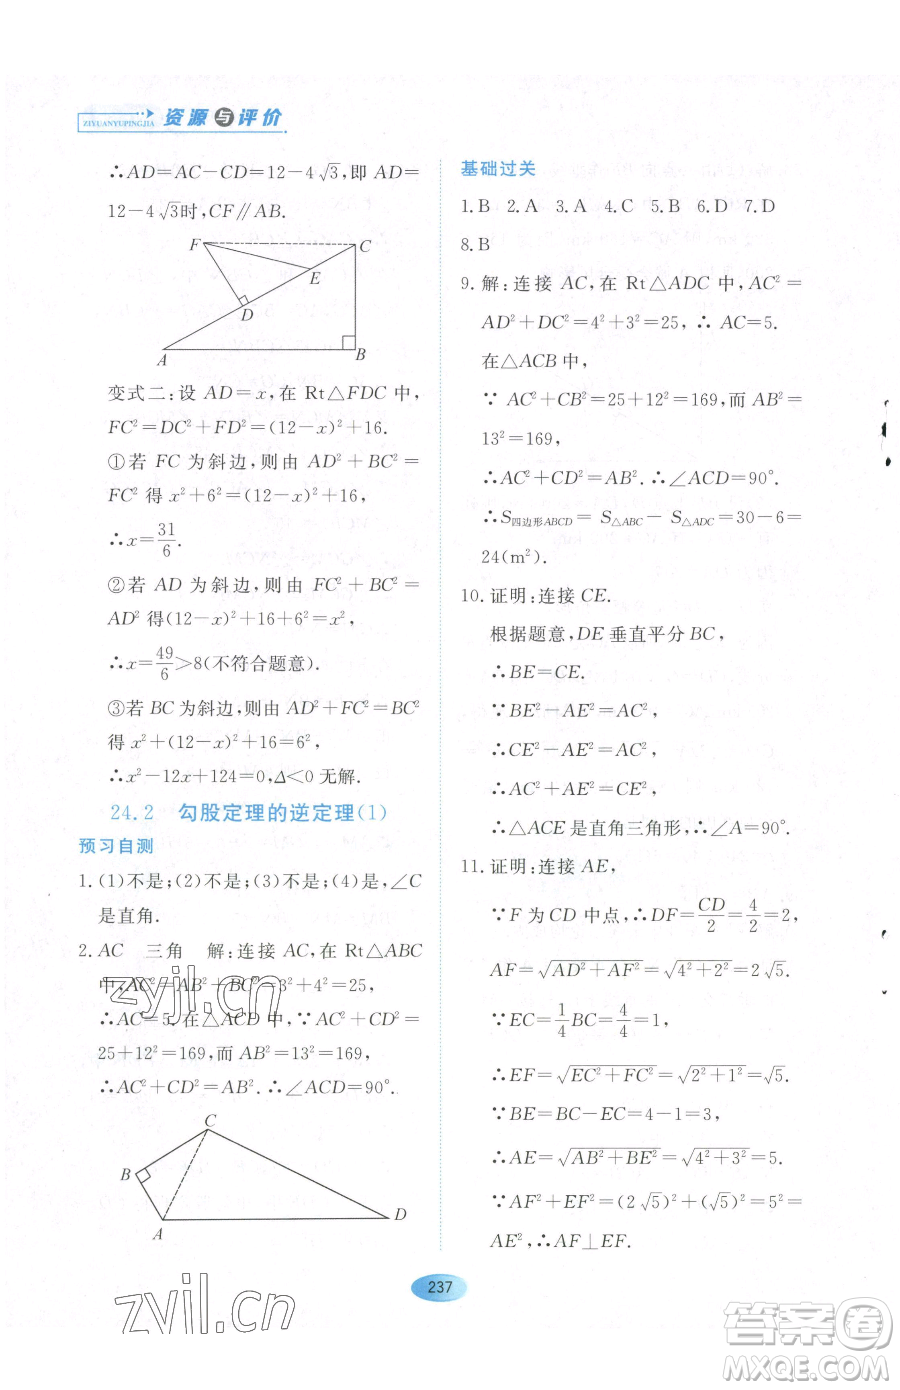 资源与评价
ZIYUANYUPINGJIA
∴AD=AC-CD=12-4√3,即 AD=
12-4√3时,CF∥AB.
F
C
E
D
A
B
变式二:设 AD=x,在 Rt△FDC 中,
FC²=DC²+FD²=(12-x)²+16.
①若 FC 为斜边,则由 AD²+BC²=
FC² 得 x²+6²=(12-x)²+16,
∴x=31/6.
②若 AD 为斜边,则由 FC²+BC²=
AD² 得(12-x)²+16+6²=x²,
∴x=49/6>8(不符合题意).
③若 BC 为斜边,则由 AD²+FC²=BC²
得 x²+(12-x)²+16=6²,
∴x²-12x+124=0,Δ<0 无解.
24.2 勾股定理的逆定理(1)
预习自测
1.(1)不是;(2)不是;(3)不是;(4)是,∠C
是直角.
2.AC 三角 解:连接 AC,在 Rt△ABC
中,AC²=AB²+BC²=3²+4²=25,
∴AC=5.在△ACD 中,∵AC²+CD²=
25+12²=169,而 AB²=13²=169,
∴AC²+CD²=AB².∴∠ACD=90°.
C
B
A
D
zyjl.cn
zyjl.cn
基础过关
1.B 2.A 3.A 4.C 5.B 6.D 7.D
8.B
9.解:连接 AC,在 Rt△ADC 中,AC²=
AD²+DC²=4²+3²=25,∴AC=5.
在△ACB 中,
∵AC²+CB²=25+12²=169,而 AB²=
13²=169,
∴AC²+CD²=AB².∴∠ACD=90°.
∴S四边形ABCD=S△ABC-S△ADC=30-6=
24(m²).
10.证明:连接 CE.
根据题意,DE 垂直平分 BC,
∴BE=CE.
∵BE²-AE²=AC²,
∴CE²-AE²=AC²,
∴AC²+AE²=CE²,
∴△ACE 是直角三角形,∴∠A=90°.
11.证明:连接 AE,
∵F 为 CD 中点,∴DF=CD/2=4/2=2,
AF=√(AD²+AF²)=√(4²+2²)=2√5.
∵EC=1/4BC=4/4=1,
∴EF=√(EC²+FC²)=√(2²+1²)=√5.
∵BE=BC-EC=4-1=3,
∴AE=√(AB²+BE²)=√(4²+3²)=5.
∵AF²+EF²=(2√5)²+(√5)²=5²=
AE²,∴AF⊥EF.
237
答案圈
MXQE.COM